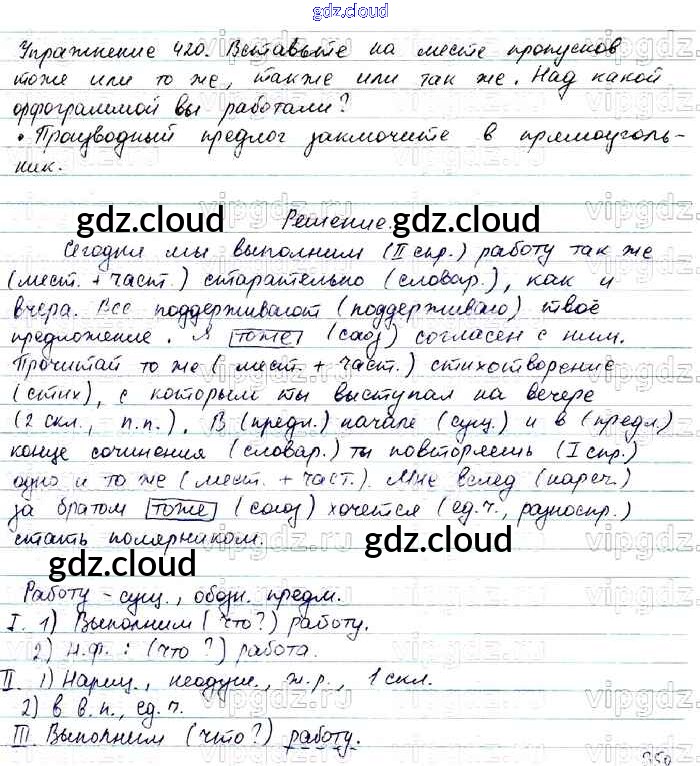 gdz.cloud
Упражнение 420. Вставьте на месте пропусков
тоже или то же, также или так же. Над какой
орфограммой вы работали?
• Производный предлог заключите в прямоуголь-
ник.
gdz.cloud Решение. gdz.cloud
Сегодня мы выполним (II спр.) работу так же
(мест. + част.) старательно (словар.), как и
вчера. Все поддерживают (поддерживаю) твоё
предложение. Я тоже (союз) согласен с ним.
Прочитай то же (мест. + част.) стихотворение
(стих), с которым ты выступал на вечере
(2 скл., п.п.). В (предл.) начале (сущ.) и в (предл.)
конце сочинения (словар.) ты повторяешь (I спр.)
одно и то же (мест. + част.). Мне вслед (нареч.)
за братом тоже (союз) хочется (ед.ч., разноспр.)
стать полярником.
gdz.cloud gdz.cloud
Работу - сущ., обозн. предм.
I. 1) Выполним (что?) работу.
2) Н.ф.: (что?) работа.
II. 1) Нариц., неодуш., ж.р., 1 скл.
2) в В.п., ед.ч.
III. Выполним (что?) работу.